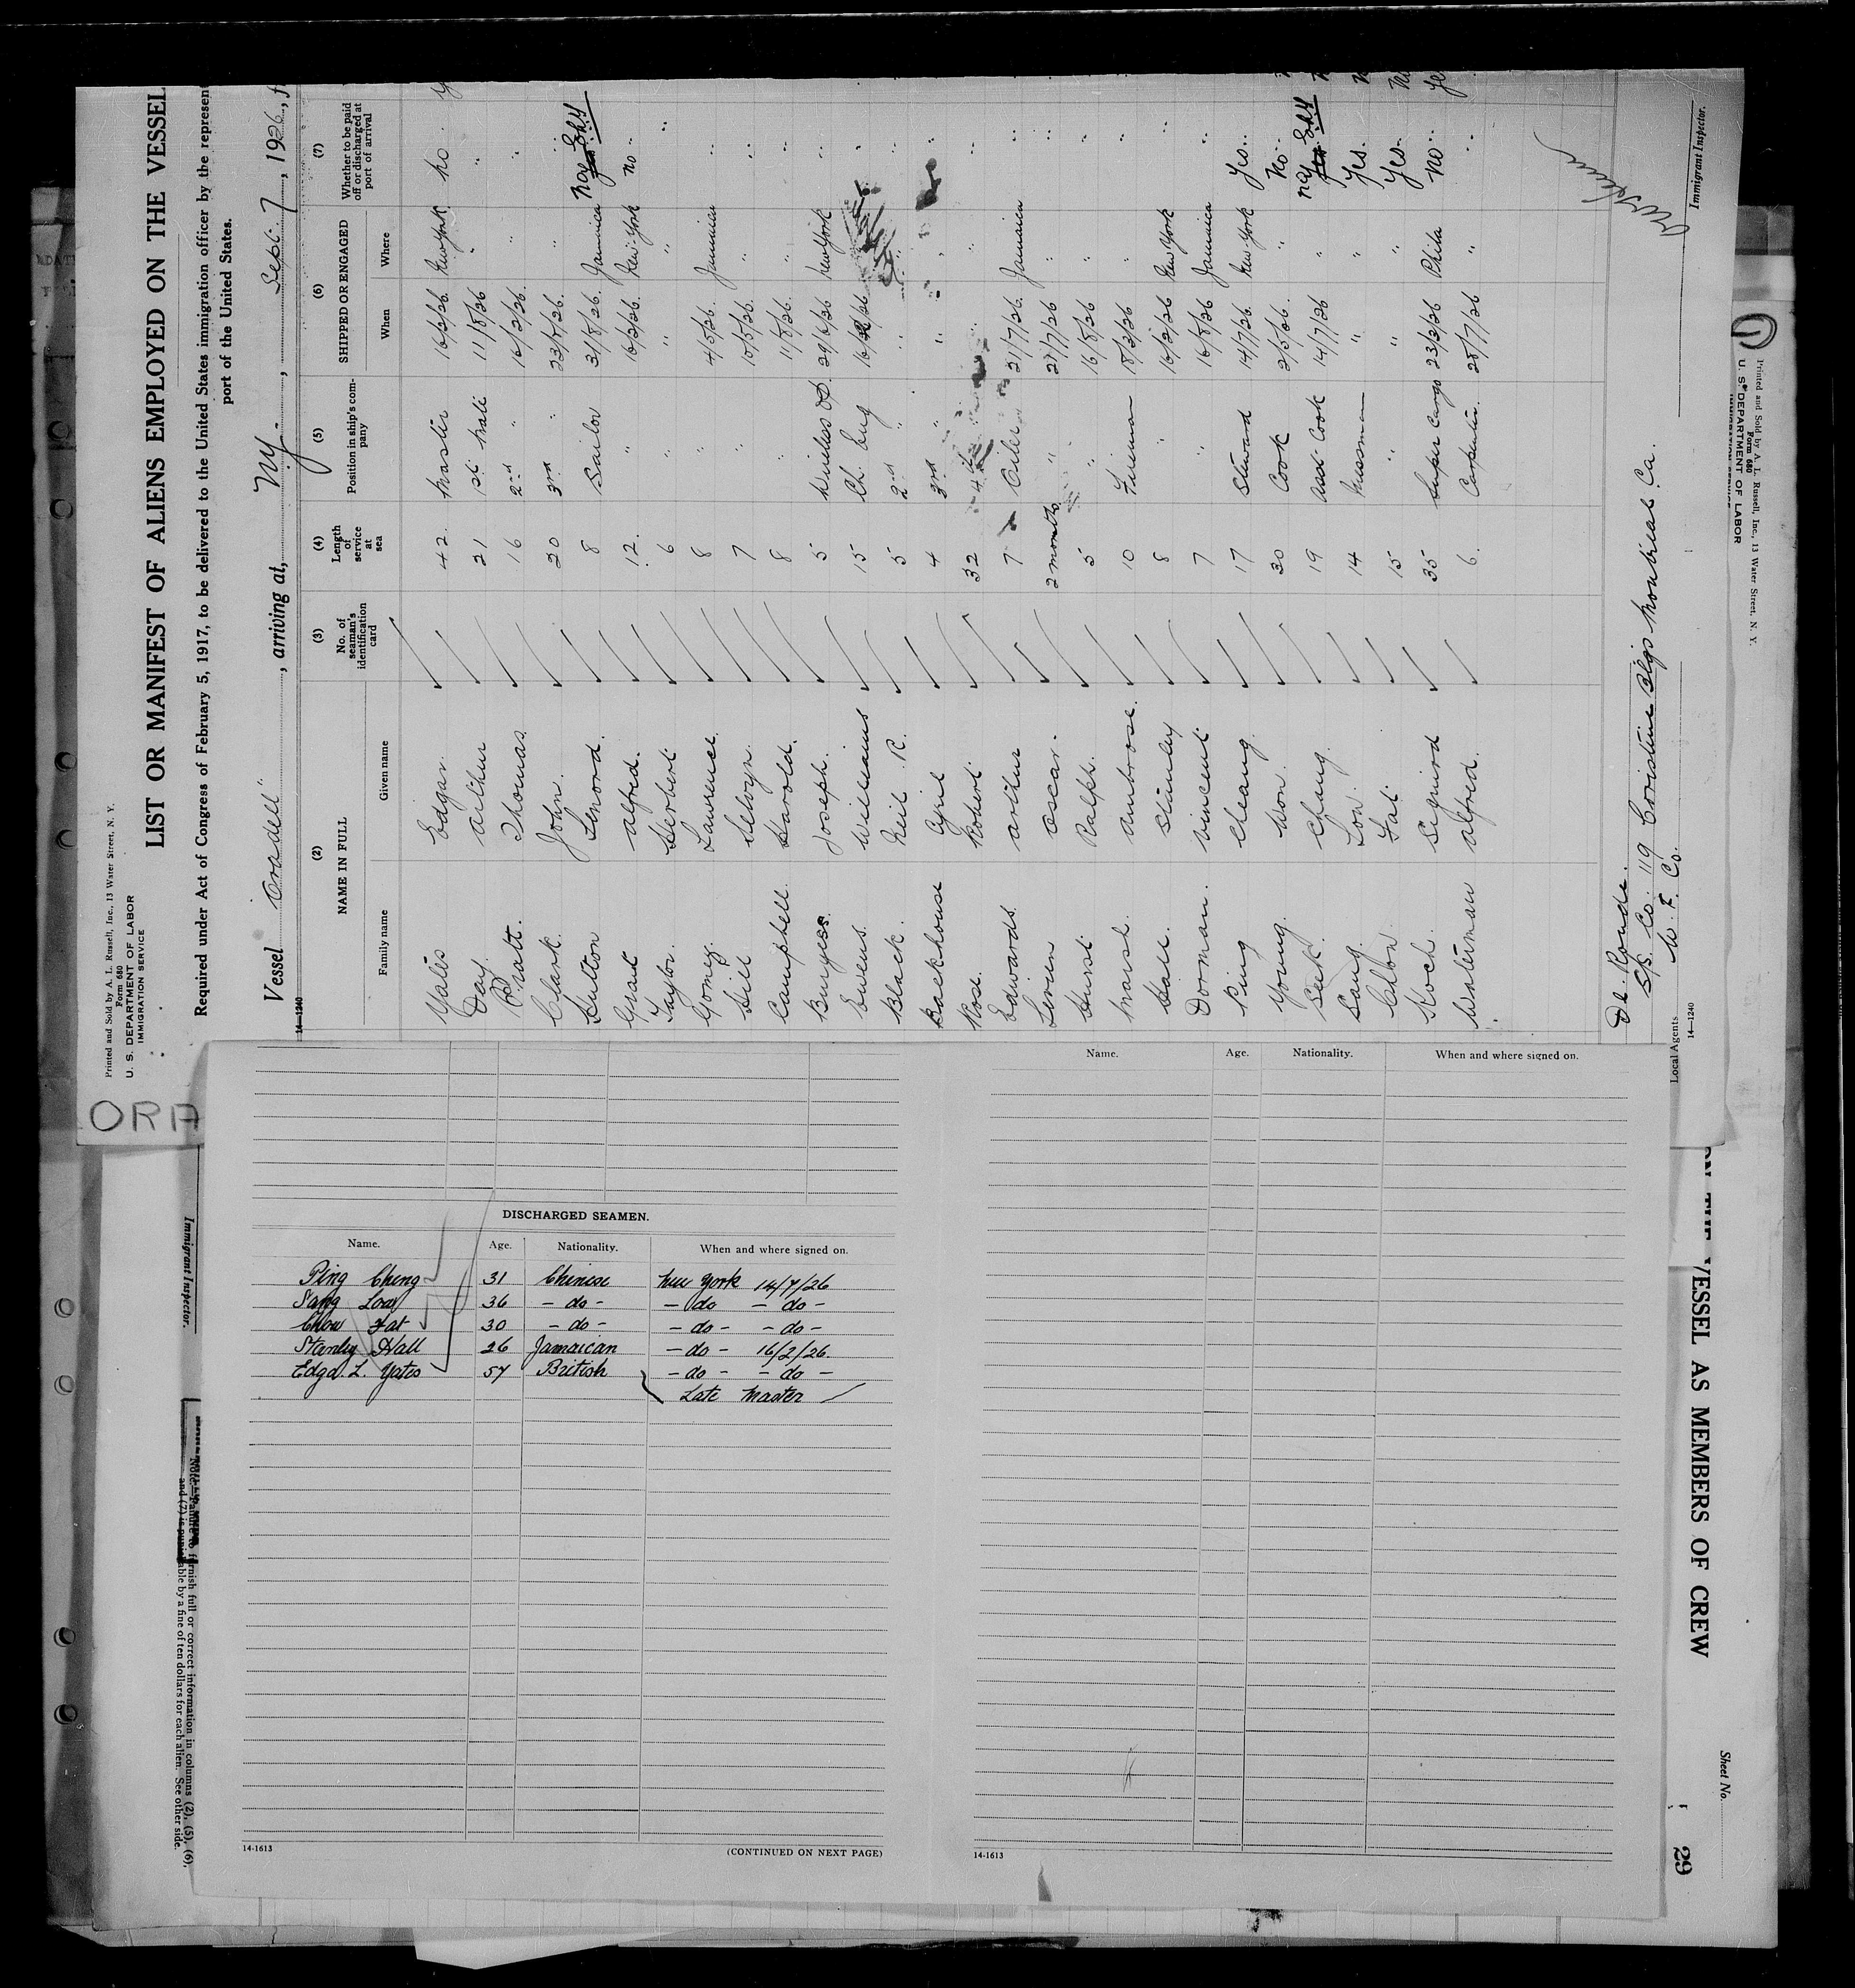 Printed and Sold by A. L. Russell, Inc., 13 Water Street, N. Y.
Form 680
U. S. DEPARTMENT OF LABOR
IMMIGRATION SERVICE
LIST OR MANIFEST OF ALIENS EMPLOYED ON THE VESSEL
Required under Act of Congress of February 5, 1917, to be delivered to the United States immigration officer by the represent
port of the United States.
Vessel "Oradell", arriving at, N.Y., Sept. 7, 1926, f
14—1240
(2) (3) (4) (5) (6) (7)
NAME IN FULL No. of seaman's identification card Length of service at sea Position in ship's company SHIPPED OR ENGAGED Whether to be paid off or discharged at port of arrival
Family name Given name When Where
Yates Edgar. 42 Master 16/2/26 New York No.
Day. Arthur 21 1st Mate 11/8/26 " "
Pratt. Thomas. 16 2nd " 16/2/26 " "
Clark. John. 20 3rd " 23/8/26. " "
Hutton Lenord. 8 Sailor 31/8/26. Jamaica
Grant Alfred. 12. " 16/2/26. New York No.
Taylor. Herbert 6 " " " "
Gomez Laurence. 8 " 4/5/26. Jamaica "
Hill Selvyn. 7 " 10/5/26. " "
Campbell. Harold. 8 " 11/8/26. " "
Burgess. Joseph. 5 Wireless Op. 29/6/26 New York "
Ewens. Williams 15 Ch. Eng 16/2/26 "
Black. Neil R. 5 2nd " " " "
Backhouse Cyril 4 3rd " " "
Rose. Robert. 32 4th " " "
Edwards. Arthur 7 Oiler 21/7/26. Jamaica "
Oscar. 2 months " 27/7/26 " "
Hurst. Ralph. 5 " 16/8/26 " "
Marsh. Ambrose. 10 Fireman 18/3/26 " "
Hall. Stanley 8 " 16/2/26 New York "
Dorman. Vincent 7 " 16/8/26 Jamaica "
Ping Cheang. 17 Steward 14/7/26. New York Yes.
Young. Won. 30 Cook 2/3/26. " No.
Seek. Chang. 19 Asst Cook 14/7/26 "
Sang. Low. 14 Messman " " Yes.
Chow. Fat. 15 " " " Yes.
Koch. Siguird 35 Super Cargo 23/2/26 Phila No.
Waterman Alfred. 6. Carpenter. 28/7/26 " "
S/S. Co. 119 Coristine Bldgs Montreal Ca.
Local Agents W. F. Co.
14—1240
Immigrant Inspector.
Printed and Sold by A. L. Russell, Inc., 13 Water Street, N. Y.
Form 680
U. S. DEPARTMENT OF LABOR
ORA
DISCHARGED SEAMEN.
Name. Age. Nationality. When and where signed on.
Ping Cheng 31 Chinese New York 14/7/26
Sang Low 36 - do - - do - do -
Chow Fat 30 - do - - do - - do -
Stanley Hall 26 Jamaican - do - 16/2/26.
Edga. L. Yates 57 British - do - - do -
Late Master
14-1613
(CONTINUED ON NEXT PAGE)
Name. Age. Nationality. When and where signed on.
14-1613
Immigrant Inspector.
Note.—Failure to furnish full or correct information in columns (2), (5), (6),
and (7) is punishable by a fine of ten dollars for each alien. See other side.
VESSEL AS MEMBERS OF CREW
Sheet No.
29